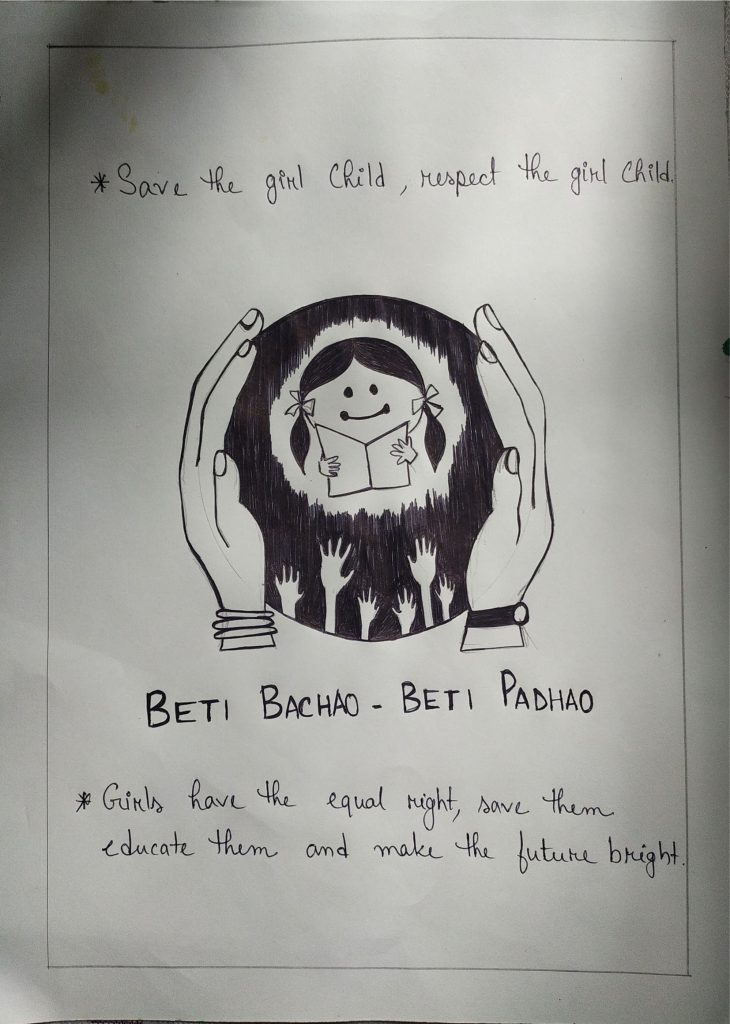 * Save the girl Child, respect the girl Child.
BETI BACHAO - BETI PADHAO
* Girls have the equal right, save them
educate them and make the future bright.